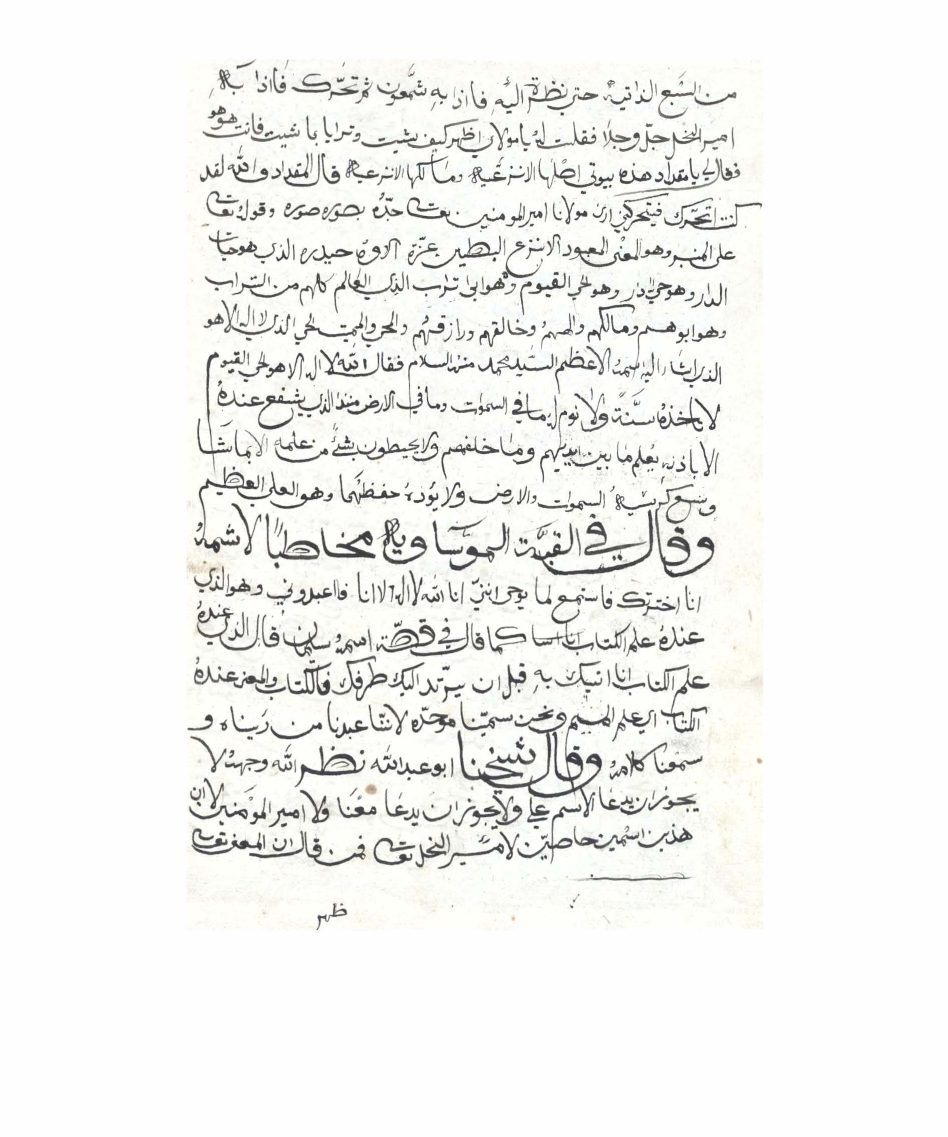 من السبع الذاتية حتى نظرة اليه فاذا به شمعون ثم تحرك فاذا به
امير النحل جل وجلا فقلت له يا مولاي اظهر كيف شيت وترايا با شيت فانت هو هو
فقال لي يا مقداد هذه بيوتي اصلها الانزعيه وما لكها الانزعيه قال المقداد والله لقد
كنت اتحرك فيتحرك ارى مولانا امير المومنين تعالى حده بصوره صوره وقوله تعالى
على المنبر وهو المعنى المعبود الانزع البطين عزة الاوه حيدره الذي هو حيات
الدار وهو حي دار وهو الحي القيوم وهو ابى تراب الذي العالم كلهم من التراب
وهو ابوهم ومالكهم والههم وخالقهم ورازقهم والحي والمميت الحي الذي لا اله الا هو
الذي اشار اليه اسمه الاعظم السيد محمد منه السلام فقال الله لا اله الا هو الحي القيوم
لا تاخذه سنة ولا نوم له ما في السموات وما في الارض منذا الذي يشفع عنده
الا باذنه يعلم ما بين ايديهم وما خلفهم ولا يحيطون بشئ من علمه الا بما شا
وسع كرسيه السموات والارض ولا يوده حفظهما وهو العلي العظيم
وقال في القبة الموساويه مخاطبا لاسمه
انا اخترتك فاستمع لما يوحى انني انا الله لا اله الا انا فاعبدوني وهو الذي
عنده علم الكتاب اساسا كما قال في قصة اسمه سليمان قال الذي عنده
علم الكتاب انا اتيك به قبل ان يرتد اليك طرفك فالكتاب والمعز عنده
الكتاب اي علم الميم ونحن سمينا موحده لاننا عبدنا من ريناه و
سمعونا كلامه وقال شيخنا ابو عبد الله نظر الله وجهه لا
يجوز ان يدعا الاسم علي ولا يجوز ان يدعا معنا ولا امير المومنين لان
هذين اسمين خاصين لامير النحل تعالى فمن قال ان المعنى تعالى
ظهر